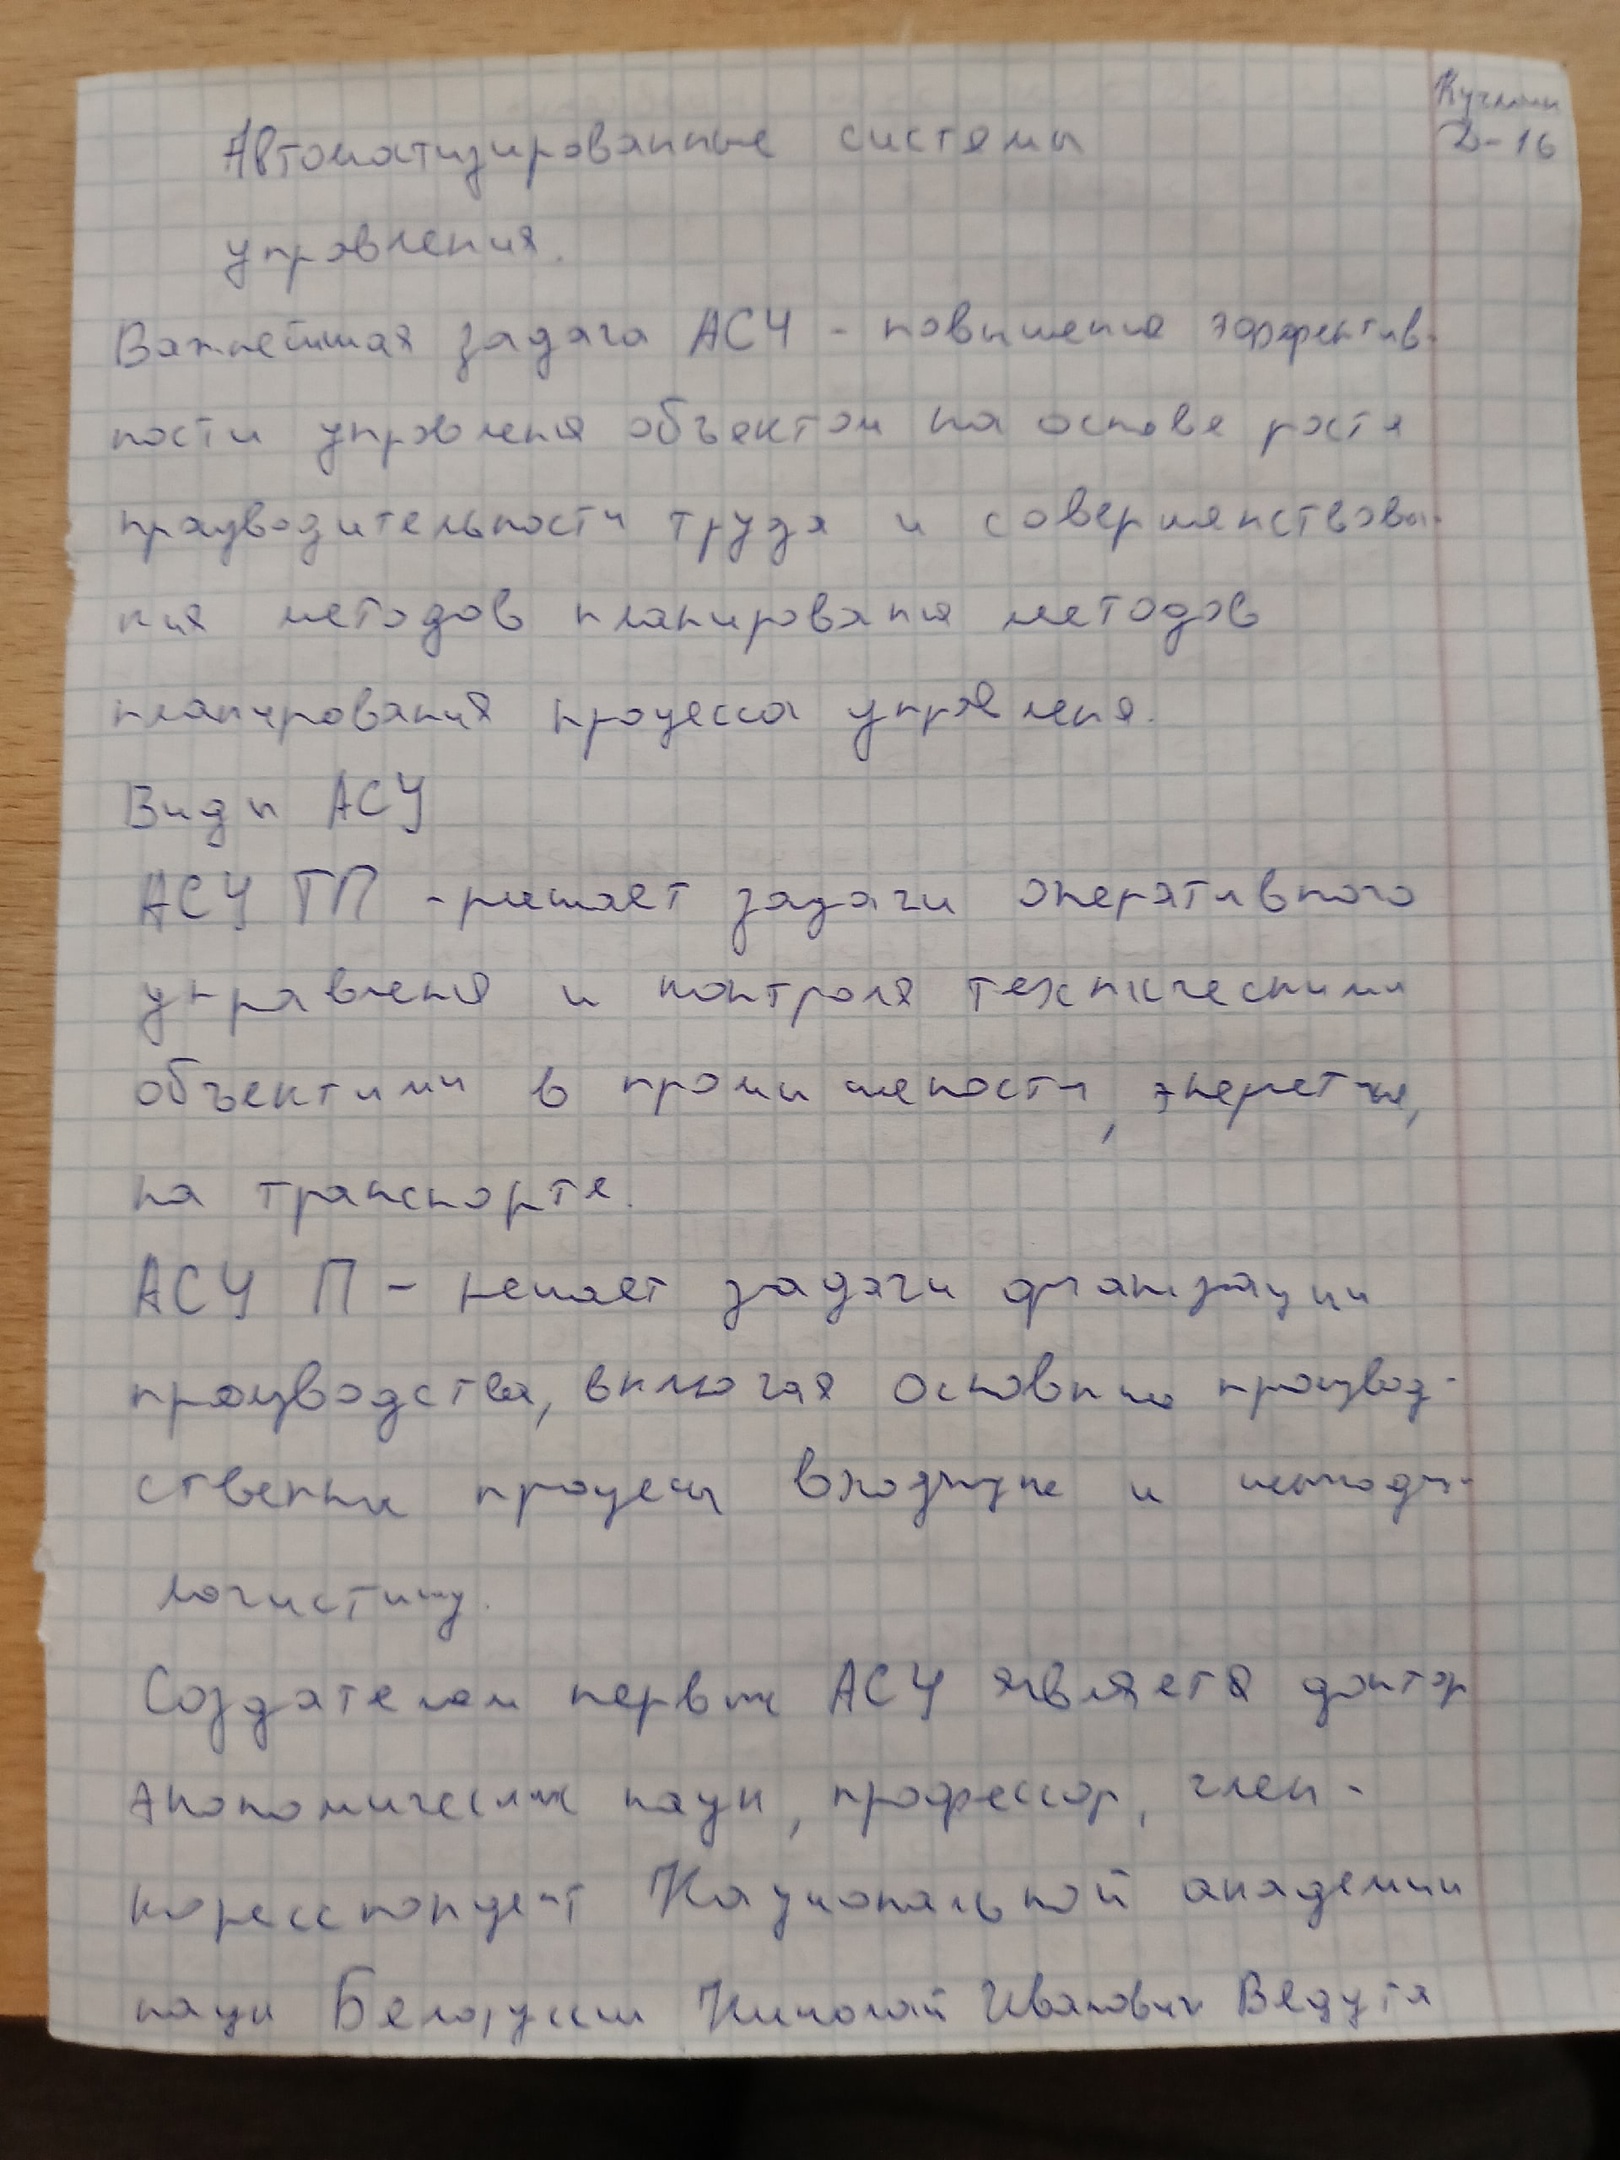 Д-16
Автоматизированные системы
управления.
Важнейшая задача АСУ - повышения эффектив-
ности управления объектом на основе роста
производительности труда и совершенствова-
ния методов планирования методов
планирования процесса управления.
Виды АСУ
АСУ ТП - решает задачи оперативного
управления и контроля техническими
объектими в промышлености, энергетики,
на транспорте.
АСУ П - решает задачи организации
производства, включая основные производ-
ственные процесы входящую и исходящ-
логистику.
Создателем первых АСУ является доктор
экономических наук, профессор, член -
кореспондент Национальной академии
наук Белоруссии Николай Иванович Ведута